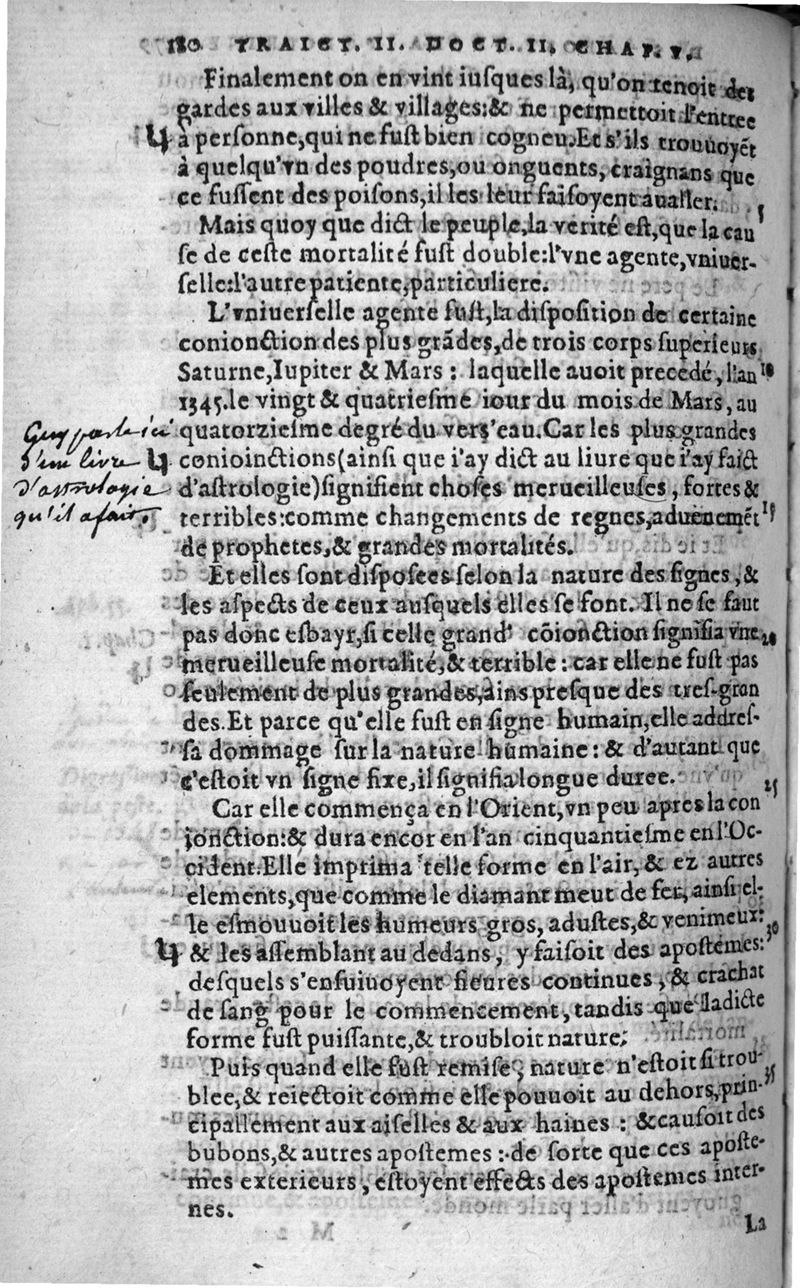 180 TRAICT. II. DOCT. II. CHAP. V.
Finalement on en vint iusques là, qu'on tenoit des
gardes aux villes & villages:& ne permettoit l'entree
à personne,qui ne fust bien cogneu.Et s'ils trouuoyẽt
à quelqu'vn des poudres,ou onguents, craignans que
ce fussent des poisons,il les leur faisoyent aualler. 5
Mais quoy que dict le peuple,la verité est,que la cau
se de ceste mortalité fust double:l'vne agente,vniuer-
selle:l'autre patiente,particuliere.
L'vniuerselle agente fust,la disposition de certaine
conionction des plus grãdes,de trois corps superieurs
Saturne,Iupiter & Mars : laquelle auoit precedé, l'an 10
1345.le vingt & quatriesme iour du mois de Mars, au
quatorziesme degré du vers'eau.Car les plus grandes
conioinctions(ainsi que i'ay dict au liure que i'ay faict
d'astrologie)signifient choses merueilleuses, fortes &
terribles:comme changements de regnes,aduenemẽt 15
de prophetes,& grandes mortalités.
Guy parle ici
d'un livre
d'astrologie
qu'il a fait.
Et elles sont disposees selon la nature des signes, &
les aspects de ceux ausquels elles se font. Il ne se faut
pas donc esbayr,si celle grand' cõionction signifia vne 20
merueilleuse mortalité,& terrible : car elle ne fust pas
seulement de plus grandes,ains presque des tres-gran
des.Et parce qu'elle fust en signe humain,elle addres-
sa dommage sur la nature humaine: & d'autant que
c'estoit vn signe fixe,il signifia longue duree. 25
Car elle commença en l'Orient,vn peu apres la con
jonction:& dura encor en l'an cinquantiesme en l'Oc-
cident.Elle imprima telle forme en l'air, & ez autres
elements,que comme le diamant meut de fer, ainsi el-
le esmouuoit les humeurs gros, adustes,& venimeux: 30
& les assemblant au dedans, y faisoit des apostemes:
desquels s'ensuiuoyent fieures continues, & crachat
de sang pour le commencement, tandis que ladicte
forme fust puissante,& troubloit nature:
Puis quand elle fust remise, nature n'estoit si trou- 35
blee,& reiectoit comme elle pouuoit au dehors,prin-
cipallement aux aiselles & aux haines : & causoit des
bubons,& autres apostemes : de sorte que ces aposte-
mes exterieurs, estoyent effects des apostemes inter-
nes.
La